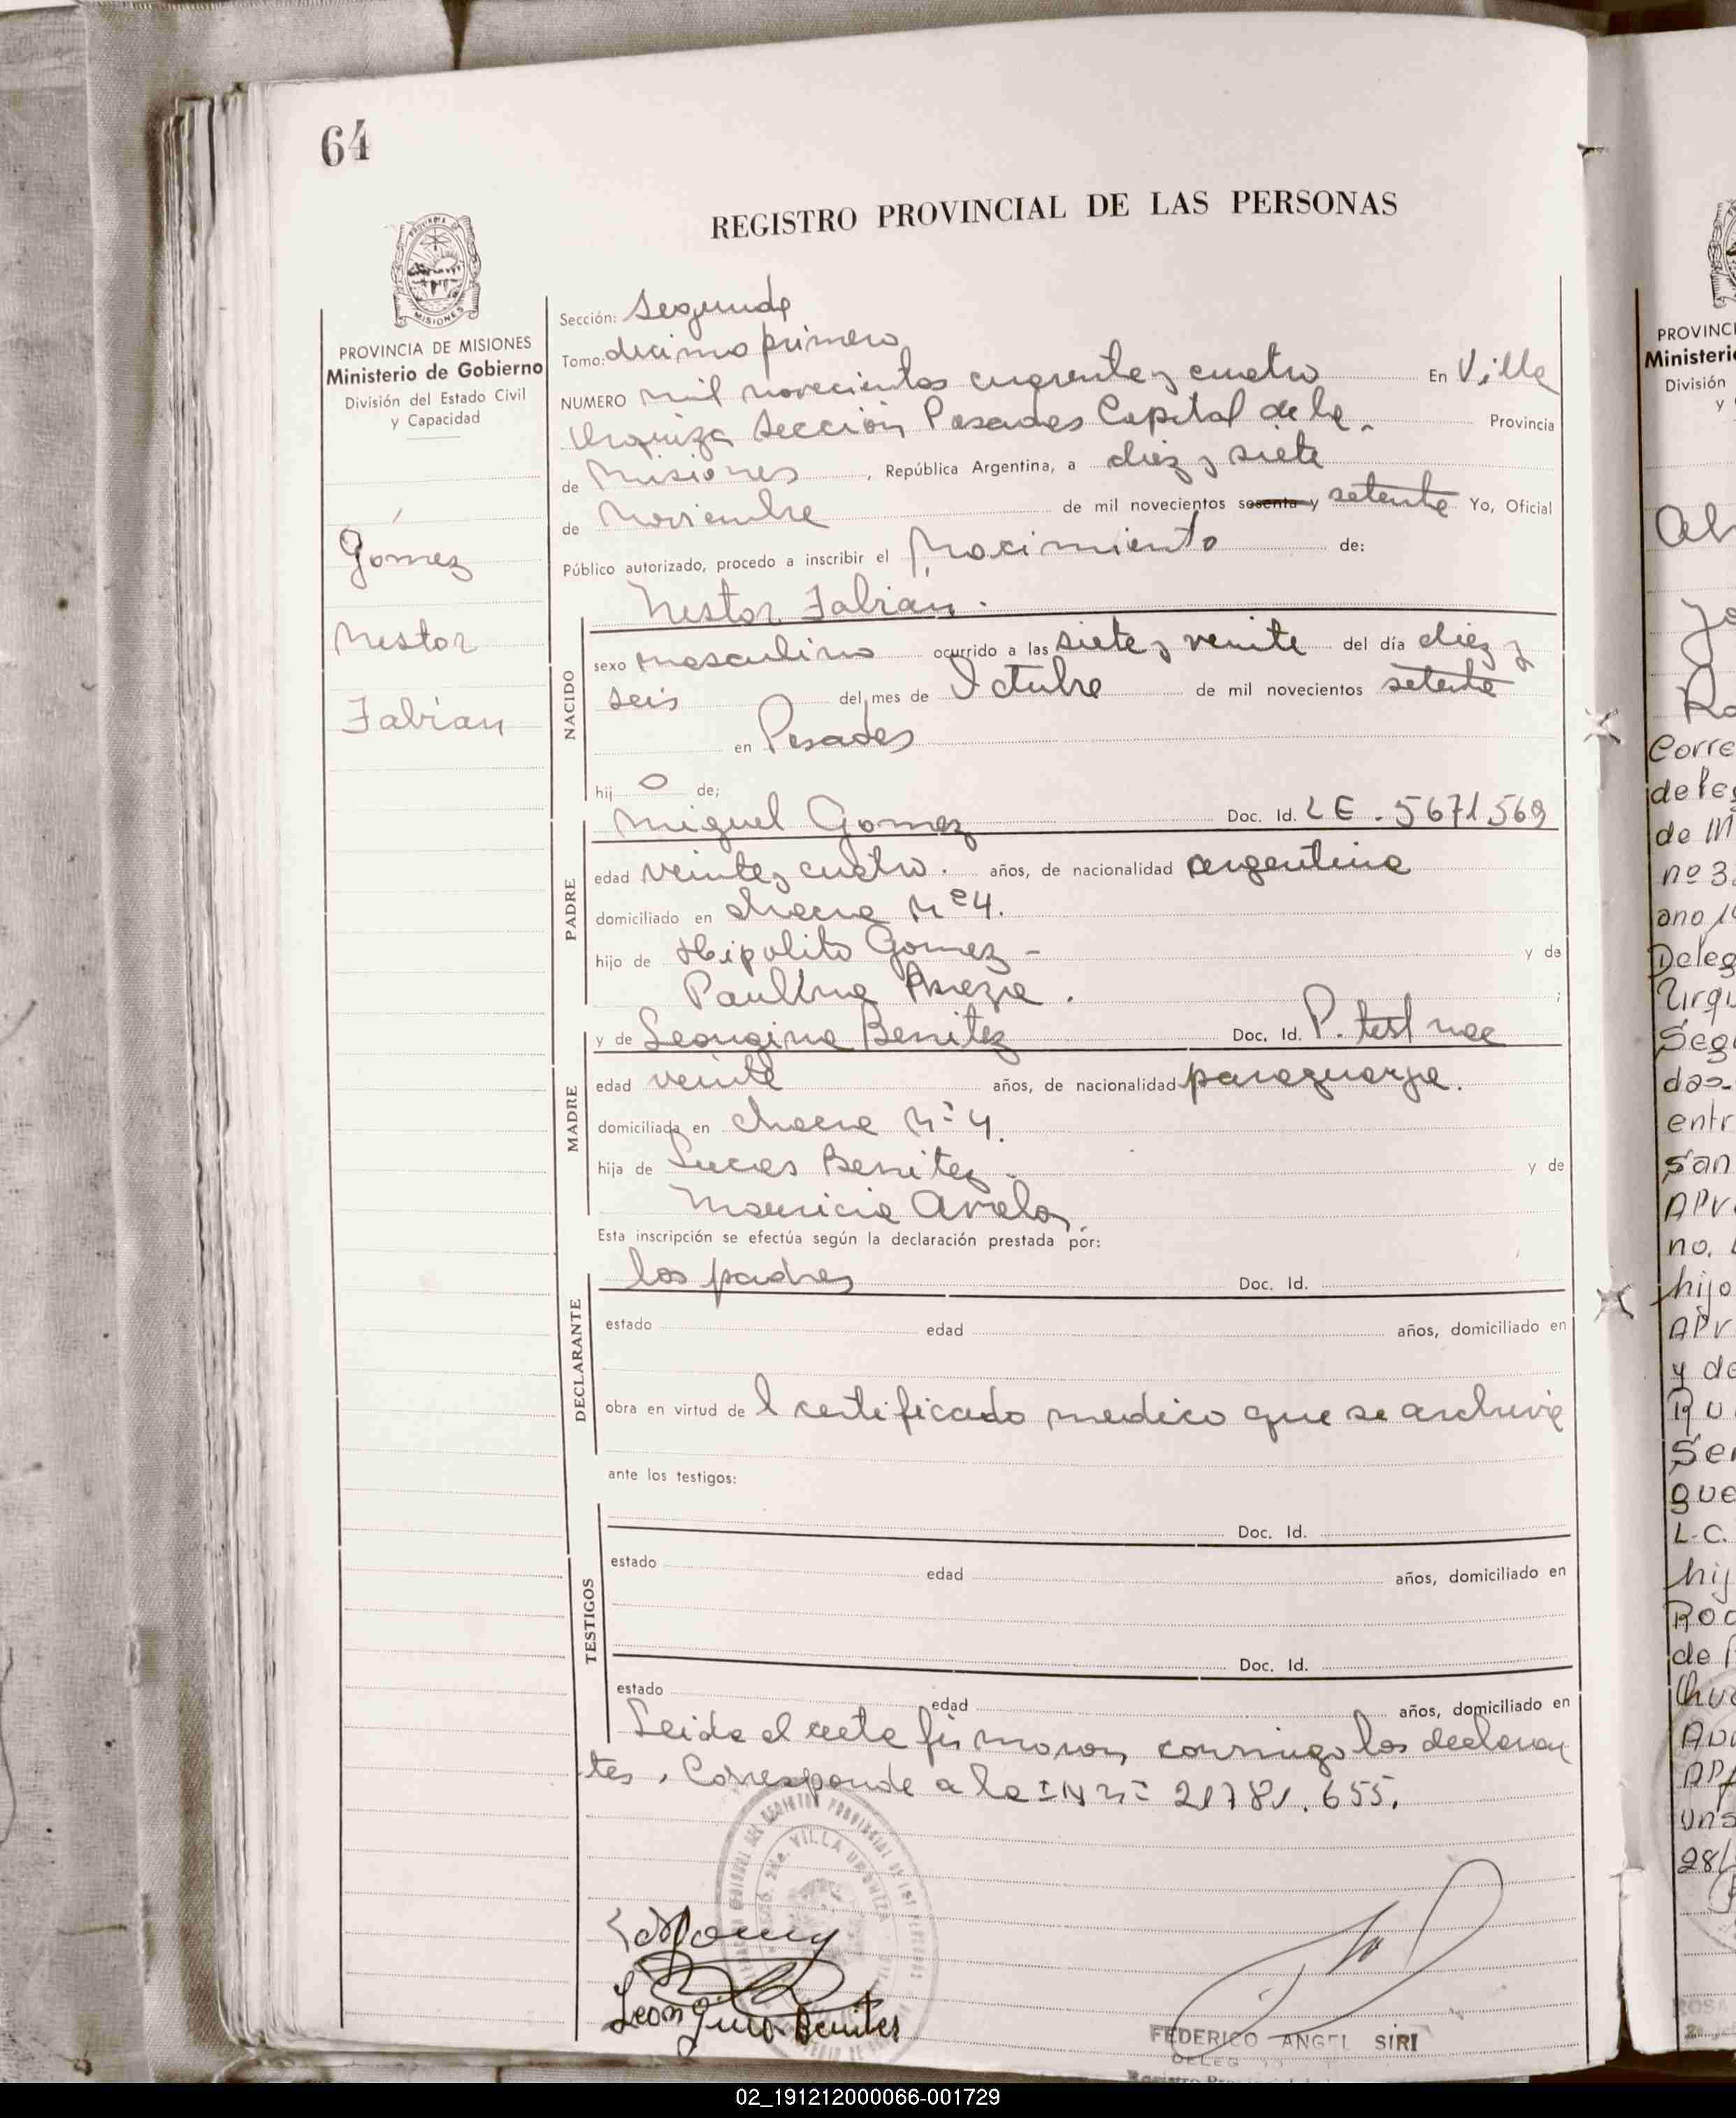 64
REGISTRO PROVINCIAL DE LAS PERSONAS
PROVINCIA DE MISIONES
Ministerio de Gobierno
División del Estado Civil
y Capacidad
Gómez
Nestor
Fabian
Sección: Segunda
Tomo: decimo primero
NUMERO mil novecientos cuarenta y cuatro En Villa
Urquiza Sección Posadas Capital de la - Provincia
de Misiones, República Argentina, a diez y siete
de Noviembre de mil novecientos sesenta y setenta Yo, Oficial
Público autorizado, procedo a inscribir el Nacimiento de:
Nestor Fabian.
NACIDO
sexo masculino ocurrido a las siete y veinte del día diez y
seis del mes de Octubre de mil novecientos setenta
en Posadas
hij o de;
PADRE
Miguel Gomez Doc. Id. LE. 5671569
edad veinte y cuatro. años, de nacionalidad argentina
domiciliado en chacra Nº 4.
hijo de Hipolito Gomez - y de
Paulina ;
MADRE
y de Leongina Benitez Doc. Id. P. test nac
edad veinte años, de nacionalidad paraguaya.
domiciliada en chacra Nº 4.
hija de Lucas Benitez - y de
Mauricia Avalos.
Esta inscripción se efectúa según la declaración prestada por:
DECLARANTE
los padres Doc. Id.
estado edad años, domiciliado en
obra en virtud de l certificado medico que se archiva
ante los testigos:
TESTIGOS
Doc. Id.
estado edad años, domiciliado en
Doc. Id.
estado edad años, domiciliado en
Leida el acta firmaron conmigo los declaran
tes. Corresponde a la IN Nº 21781.655.
VILLA URQUIZA
Leongina Benites
FEDERICO ANGEL SIRI
PROVINC
Ministeri
División
Corre
de
nº 3
Deleg
Urqu
Segu
das-
entr
San
no.
hijo
y de
L.C.
hij
02_191212000066-001729